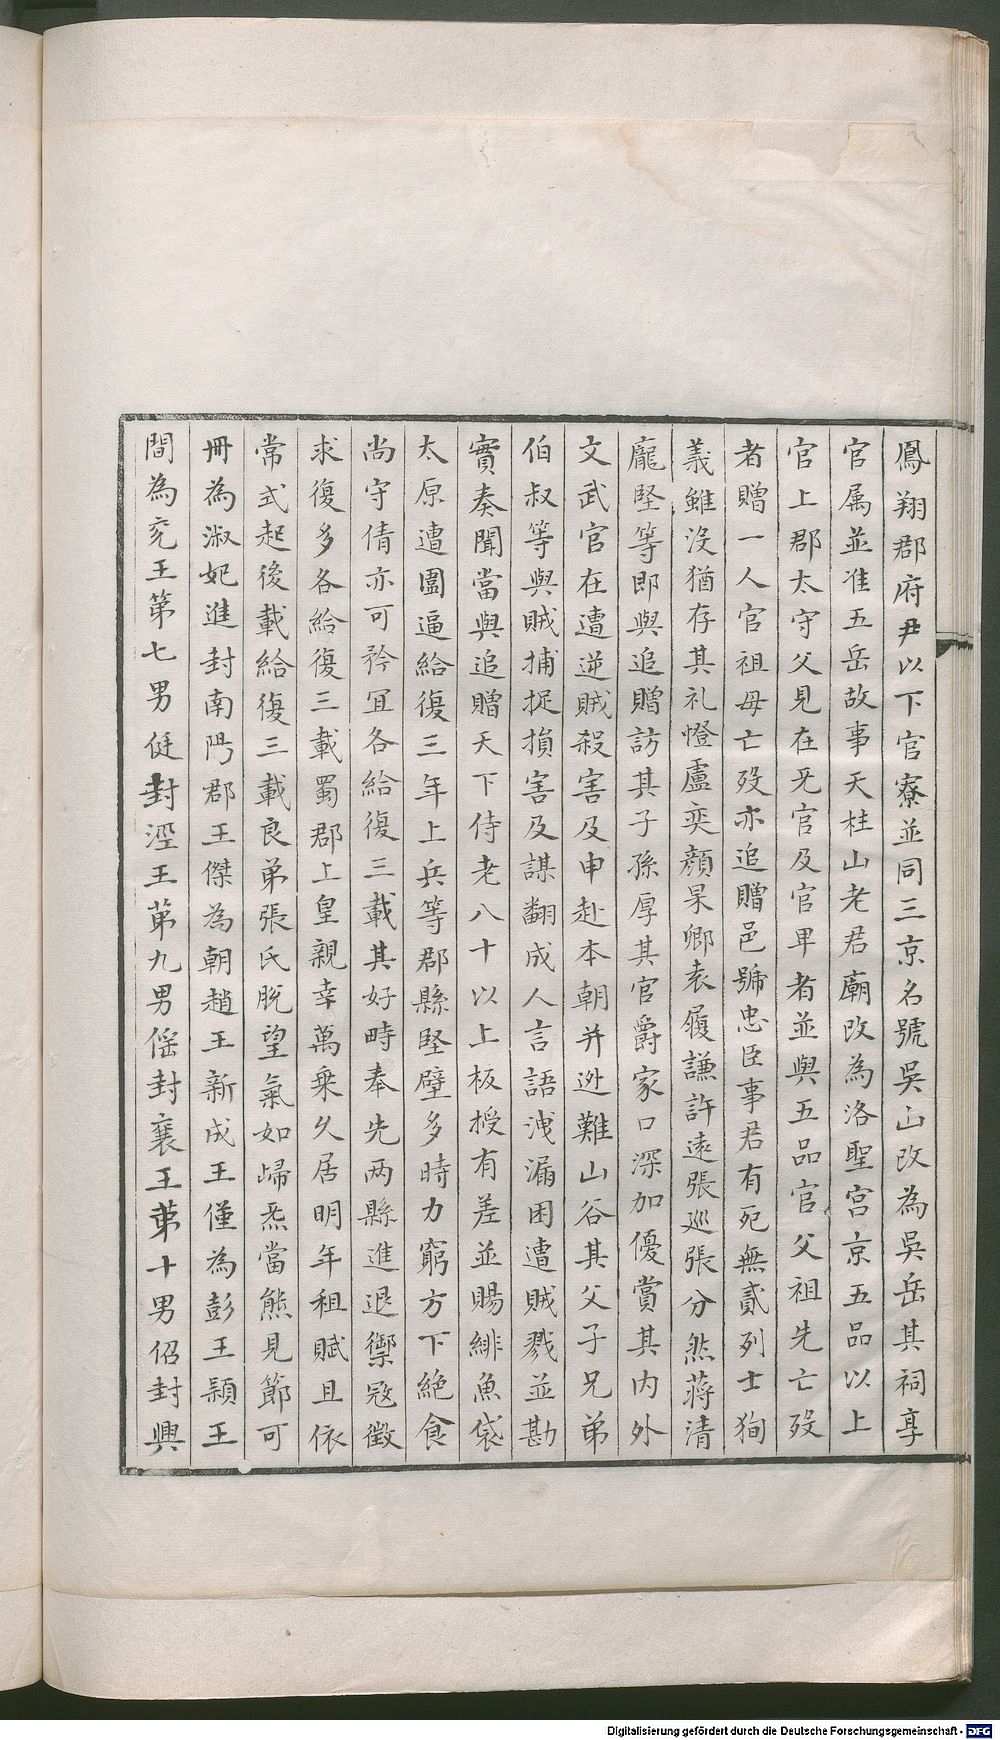 鳳翔郡府尹以下官寮並同三京名號吳山改為吳岳其祠享
官属並准五岳故事天柱山老君廟改為洛聖宫京五品以上
官上郡太守父見在旡官及官卑者並與五品官父祖先亡歿
者贈一人官祖母亡歿亦追贈邑號忠臣事君有死無貳列士狥
義雖沒猶存其礼憕盧奕顔杲卿袁履謙許逺張巡張分然蔣清
龐堅等即與追贈訪其子孫厚其官爵家口深加優賞其内外
文武官在遭逆賊殺害及申赴本朝并迯難山谷其父子兄弟
伯叔等與賊捕捉損害及謀翻成人言語洩漏困遭賊戮並勘
實奏聞當與追贈天下侍老八十以上板授有差並賜緋魚袋
太原遭圍逼給復三年上兵等郡縣堅壁多時力窮方下絶食
尚守倩亦可矜冝各給復三載其好畤奉先两縣進退禦宼徵
求復多各給復三載蜀郡上皇親幸萬乗久居明年租賦且依
常式起後載給復三載良弟張氏脱望氣如㱕炁當熊見節可
冊為淑妃進封南阳郡王傑為朝趙王新成王僅為彭王潁王
間為兖王第七男侹封涇王第九男傜封襄王第十男佋封興
Digitalisierung gefördert durch die Deutsche Forschungsgemeinschaft - DFG